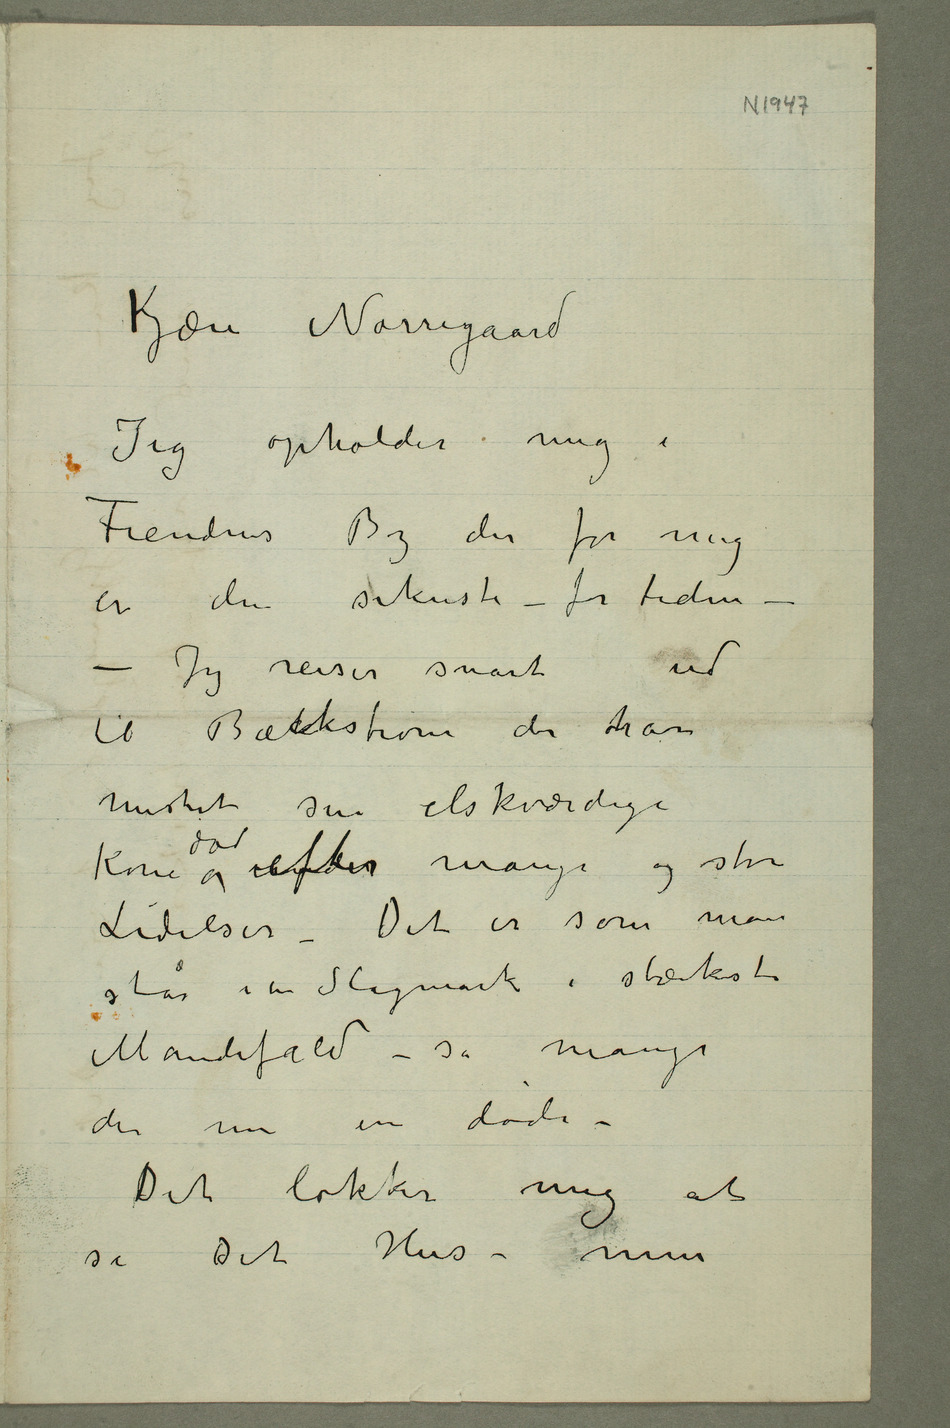 N1947
Kjære Nørregaard
Jeg opholder mig i
Fiendens By der for mig
er den sikreste – for tiden –
– Jeg reiser snart ud
til Bækkstrøm der har
mistet sin elskværdige
Kone død
og efter mange og store
Lidelser – Det er som man
står i en Slagmark i stærkeste
Mandefald – så mange
der nu er døde –
Det lokker mig at
se Det Hus – men